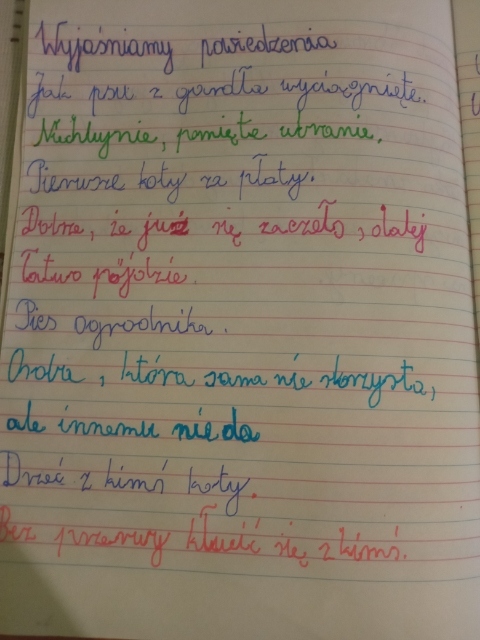 Wyjaśniamy powiedzenia
Jak psu z gardła wyciągnięte.
Niechlujnie, pomięte ubranie.
Pierwsze koty za płoty.
Dobrze, że już się zaczęło, dalej
łatwo pójdzie.
Pies ogrodnika.
Osoba, która sama nie skorzysta,
ale innemu nie da
Drzeć z kimś koty.
Bez przerwy kłócić się z kimś.